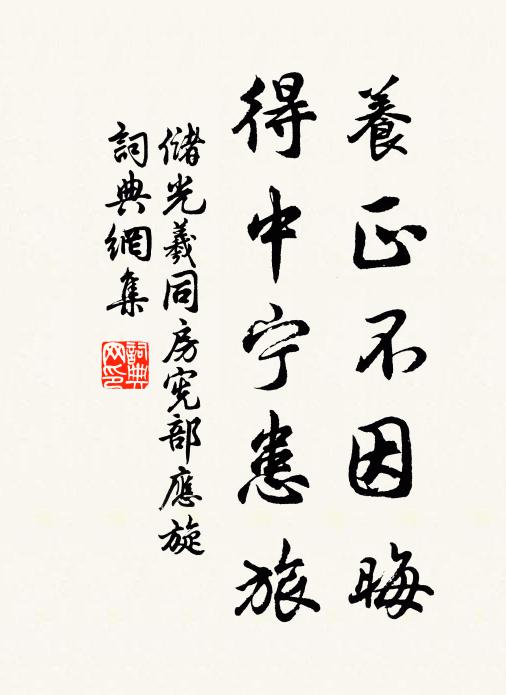 養正不因晦
得中宁患旅
儲光羲同房宪部應旋
詞典網集
詞典网印